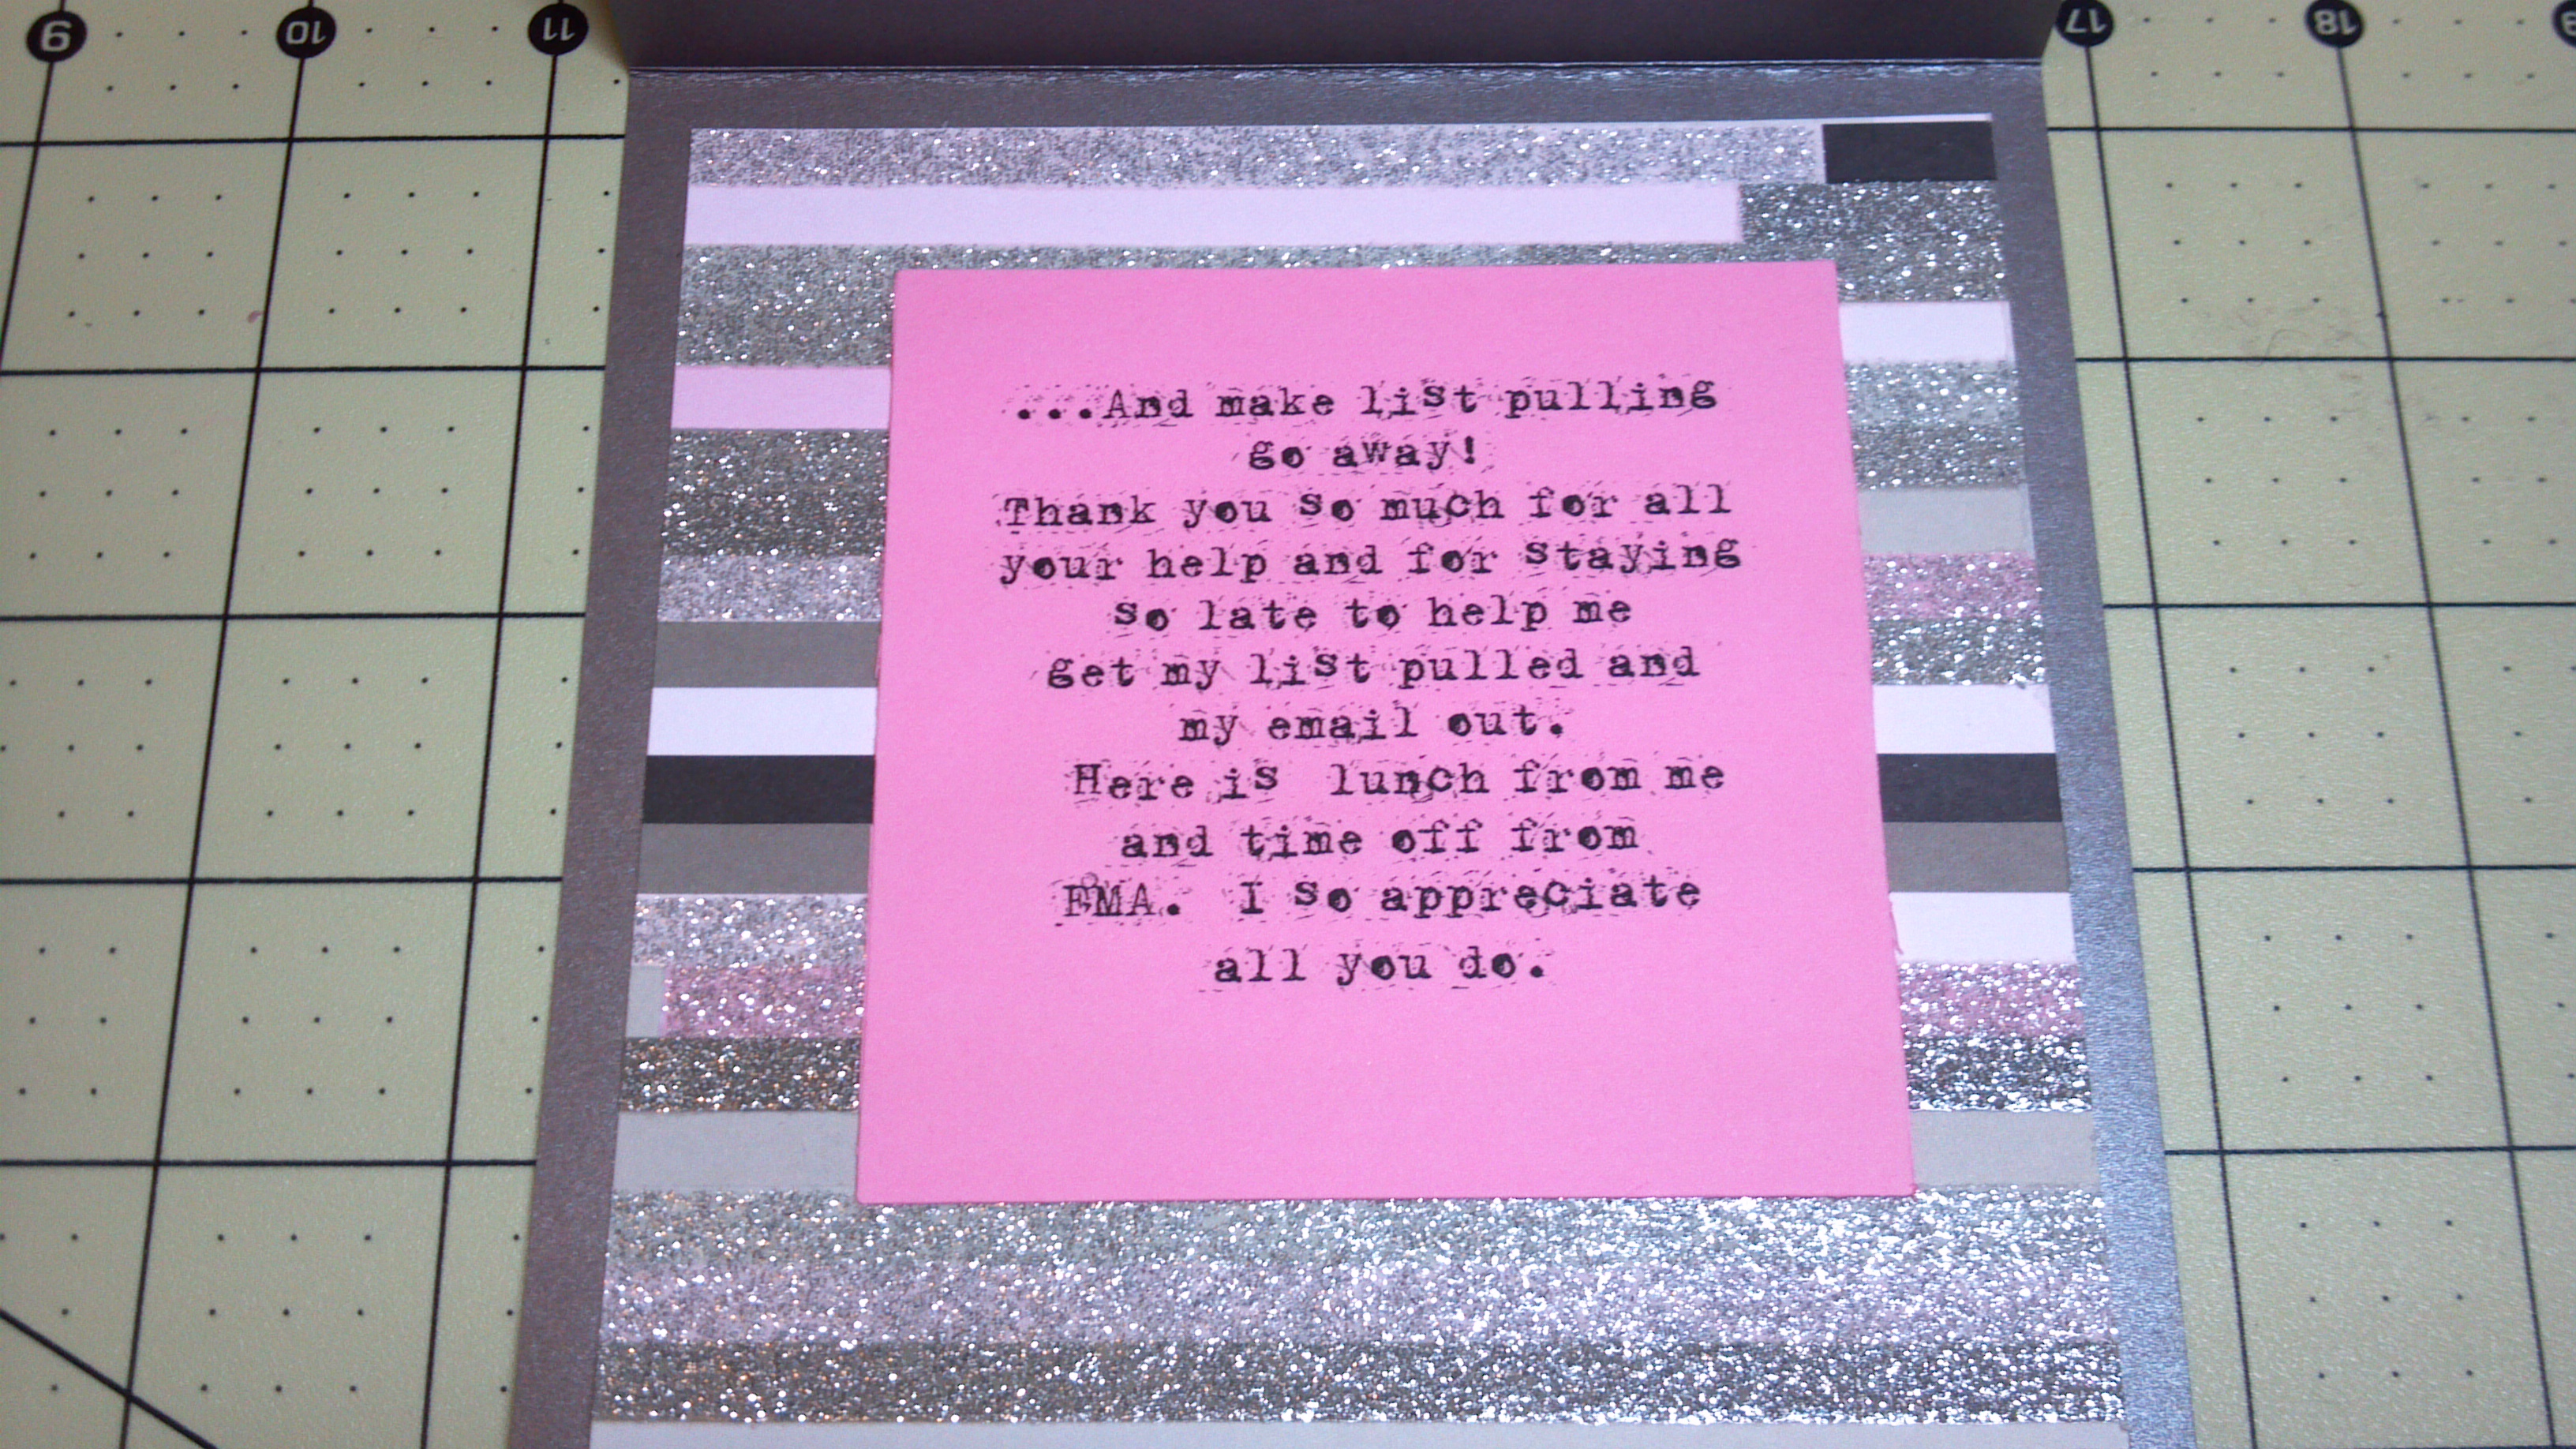 9 10 11 17 18
...And make list pulling
go away!
Thank you so much for all
your help and for staying
so late to help me
get my list pulled and
my email out.
Here is lunch from me
and time off from
FMA. I so appreciate
all you do.